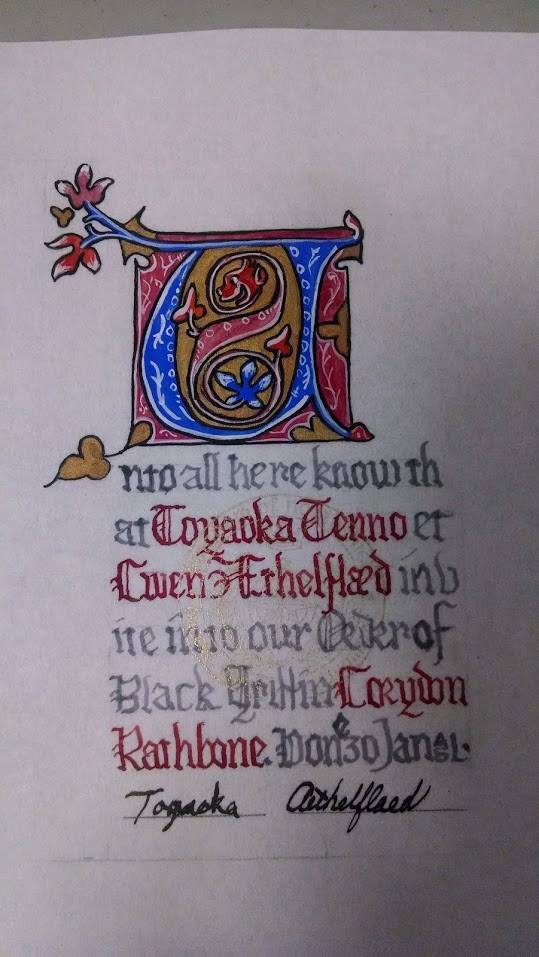 U
nto all here know th
at Toyaoka Tenno et
Cwen Æthelflæd inv
ite into our Order of
Black Griffin Corydon
Rathbone. Done 30 Jan
Toyaoka Aethelflaed